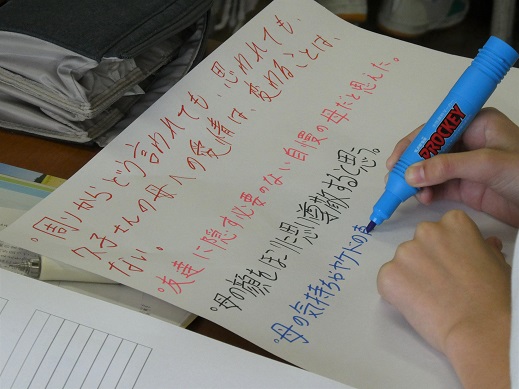 。周りからどう言われても、思われても、
久子さんの母への愛情は、変わることは、
ない。
。友達に隠す必要のない自慢の母だと思えた。
。母の顔をほこりに思い尊敬すると思う。
。母の気持ちやヤケドの
PROCKEY